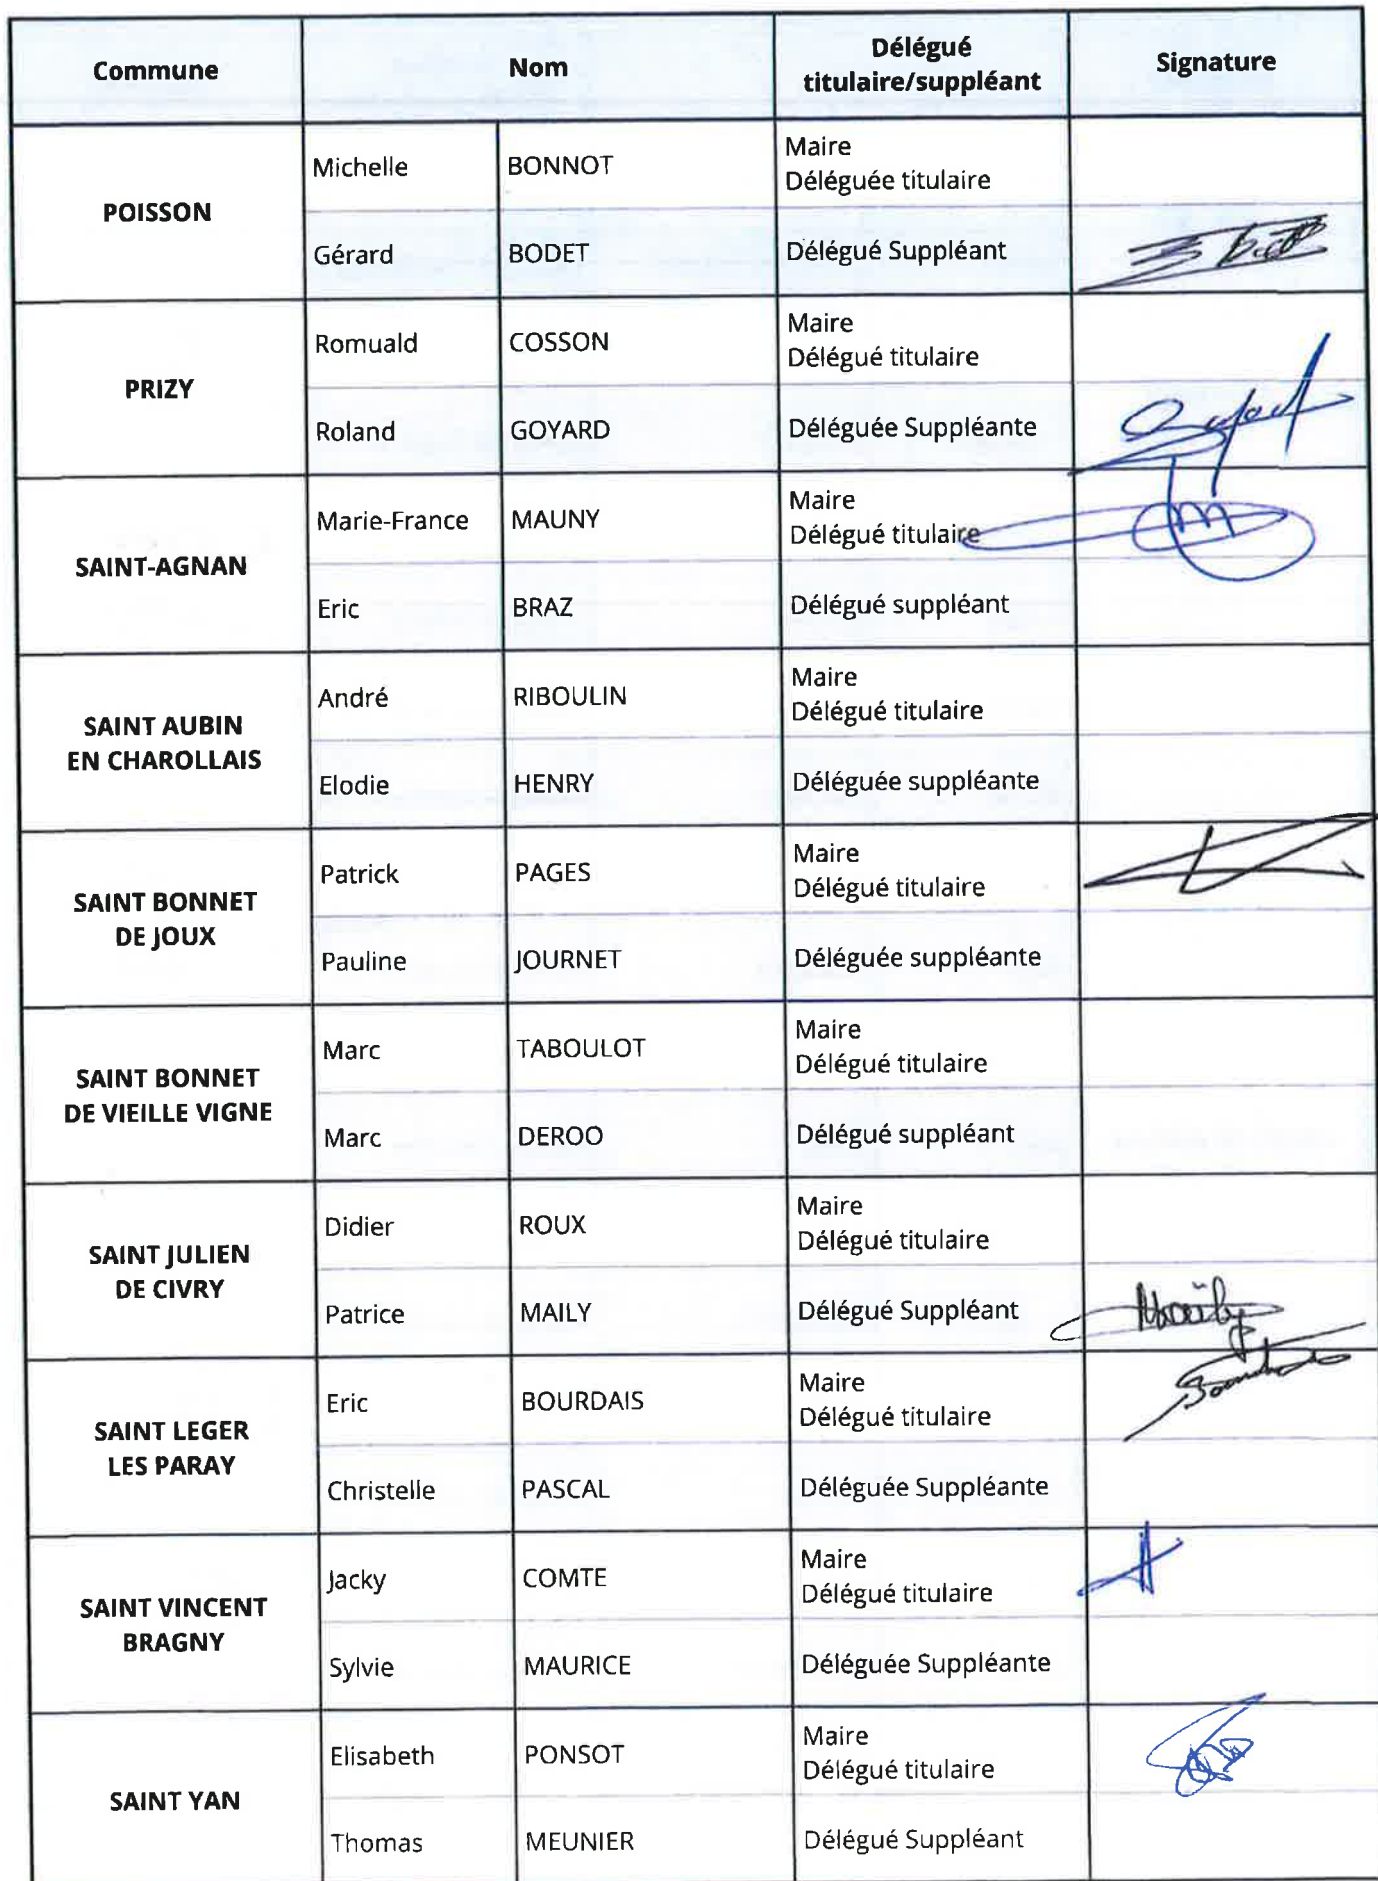 Commune Nom Délégué titulaire/suppléant Signature
POISSON
Michelle BONNOT Maire
Déléguée titulaire
Gérard BODET Délégué Suppléant
PRIZY
Romuald COSSON Maire
Délégué titulaire
Roland GOYARD Déléguée Suppléante
SAINT-AGNAN
Marie-France MAUNY Maire
Délégué titulaire
Eric BRAZ Délégué suppléant
SAINT AUBIN
EN CHAROLLAIS
André RIBOULIN Maire
Délégué titulaire
Elodie HENRY Déléguée suppléante
SAINT BONNET
DE JOUX
Patrick PAGES Maire
Délégué titulaire
Pauline JOURNET Déléguée suppléante
SAINT BONNET
DE VIEILLE VIGNE
Marc TABOULOT Maire
Délégué titulaire
Marc DEROO Délégué suppléant
SAINT JULIEN
DE CIVRY
Didier ROUX Maire
Délégué titulaire
Patrice MAILY Délégué Suppléant Maïly
SAINT LEGER
LES PARAY
Eric BOURDAIS Maire
Délégué titulaire
Christelle PASCAL Déléguée Suppléante
SAINT VINCENT
BRAGNY
Jacky COMTE Maire
Délégué titulaire
Sylvie MAURICE Déléguée Suppléante
SAINT YAN
Elisabeth PONSOT Maire
Délégué titulaire
Thomas MEUNIER Délégué Suppléant